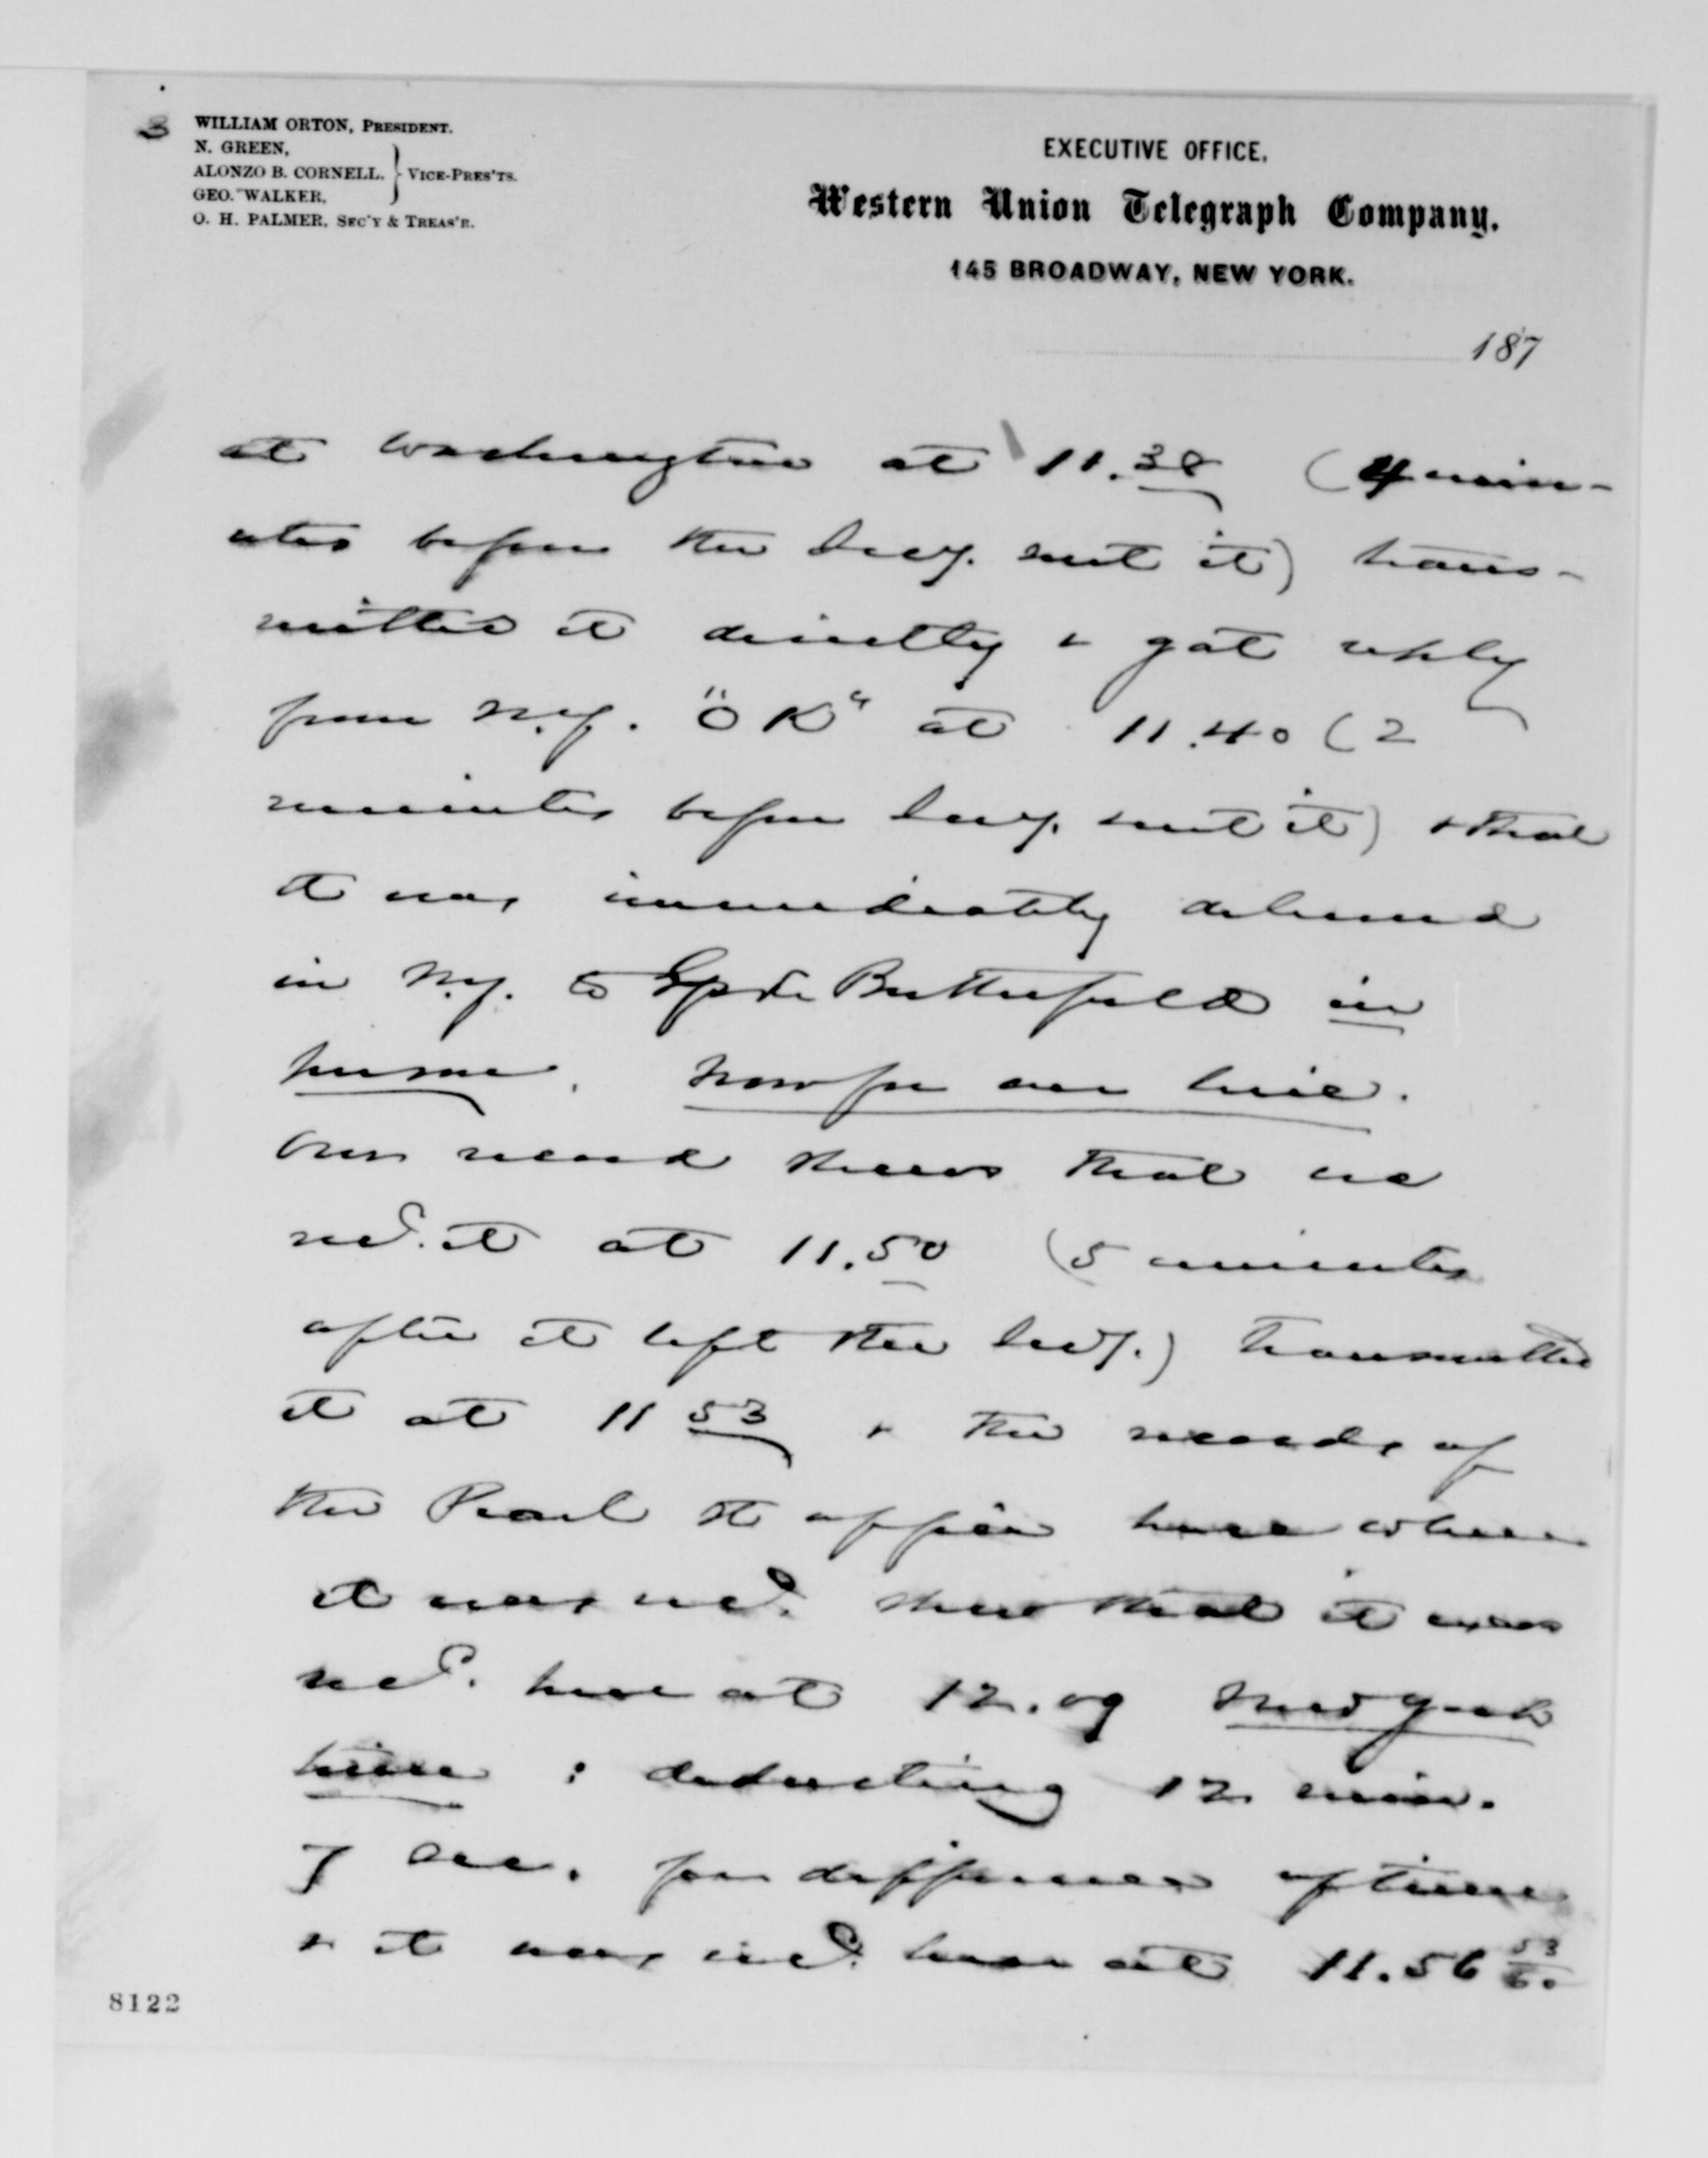 3
WILLIAM ORTON, PRESIDENT.
N. GREEN,
ALONZO B. CORNELL. } VICE-PRES'TS.
GEO. WALKER,
O. H. PALMER, SEC'Y & TREAS'R.
EXECUTIVE OFFICE.
Western Union Telegraph Company.
145 BROADWAY, NEW YORK.
187
at Washington at 11.38 (4 min-
utes before the Secy. sent it) trans-
mitted it directly & got reply
from N.Y. "OK" at 11.40 (2
minutes before Secy. sent it) & that
it was immediately delivered
in N.Y. to Butterfield in
person. Now for our line.
Our record shows that we
recd. it at 11.50 (5 minutes
after it left the Secy.) transmitted
it at 11 53 & the records of
the Pearl St office here where
it was recd. show that it was
recd. here at 12.09 New York
time : deducting 12 min.
7 sec. for difference of time
& it was recd. here at 11.56 53/60
8122